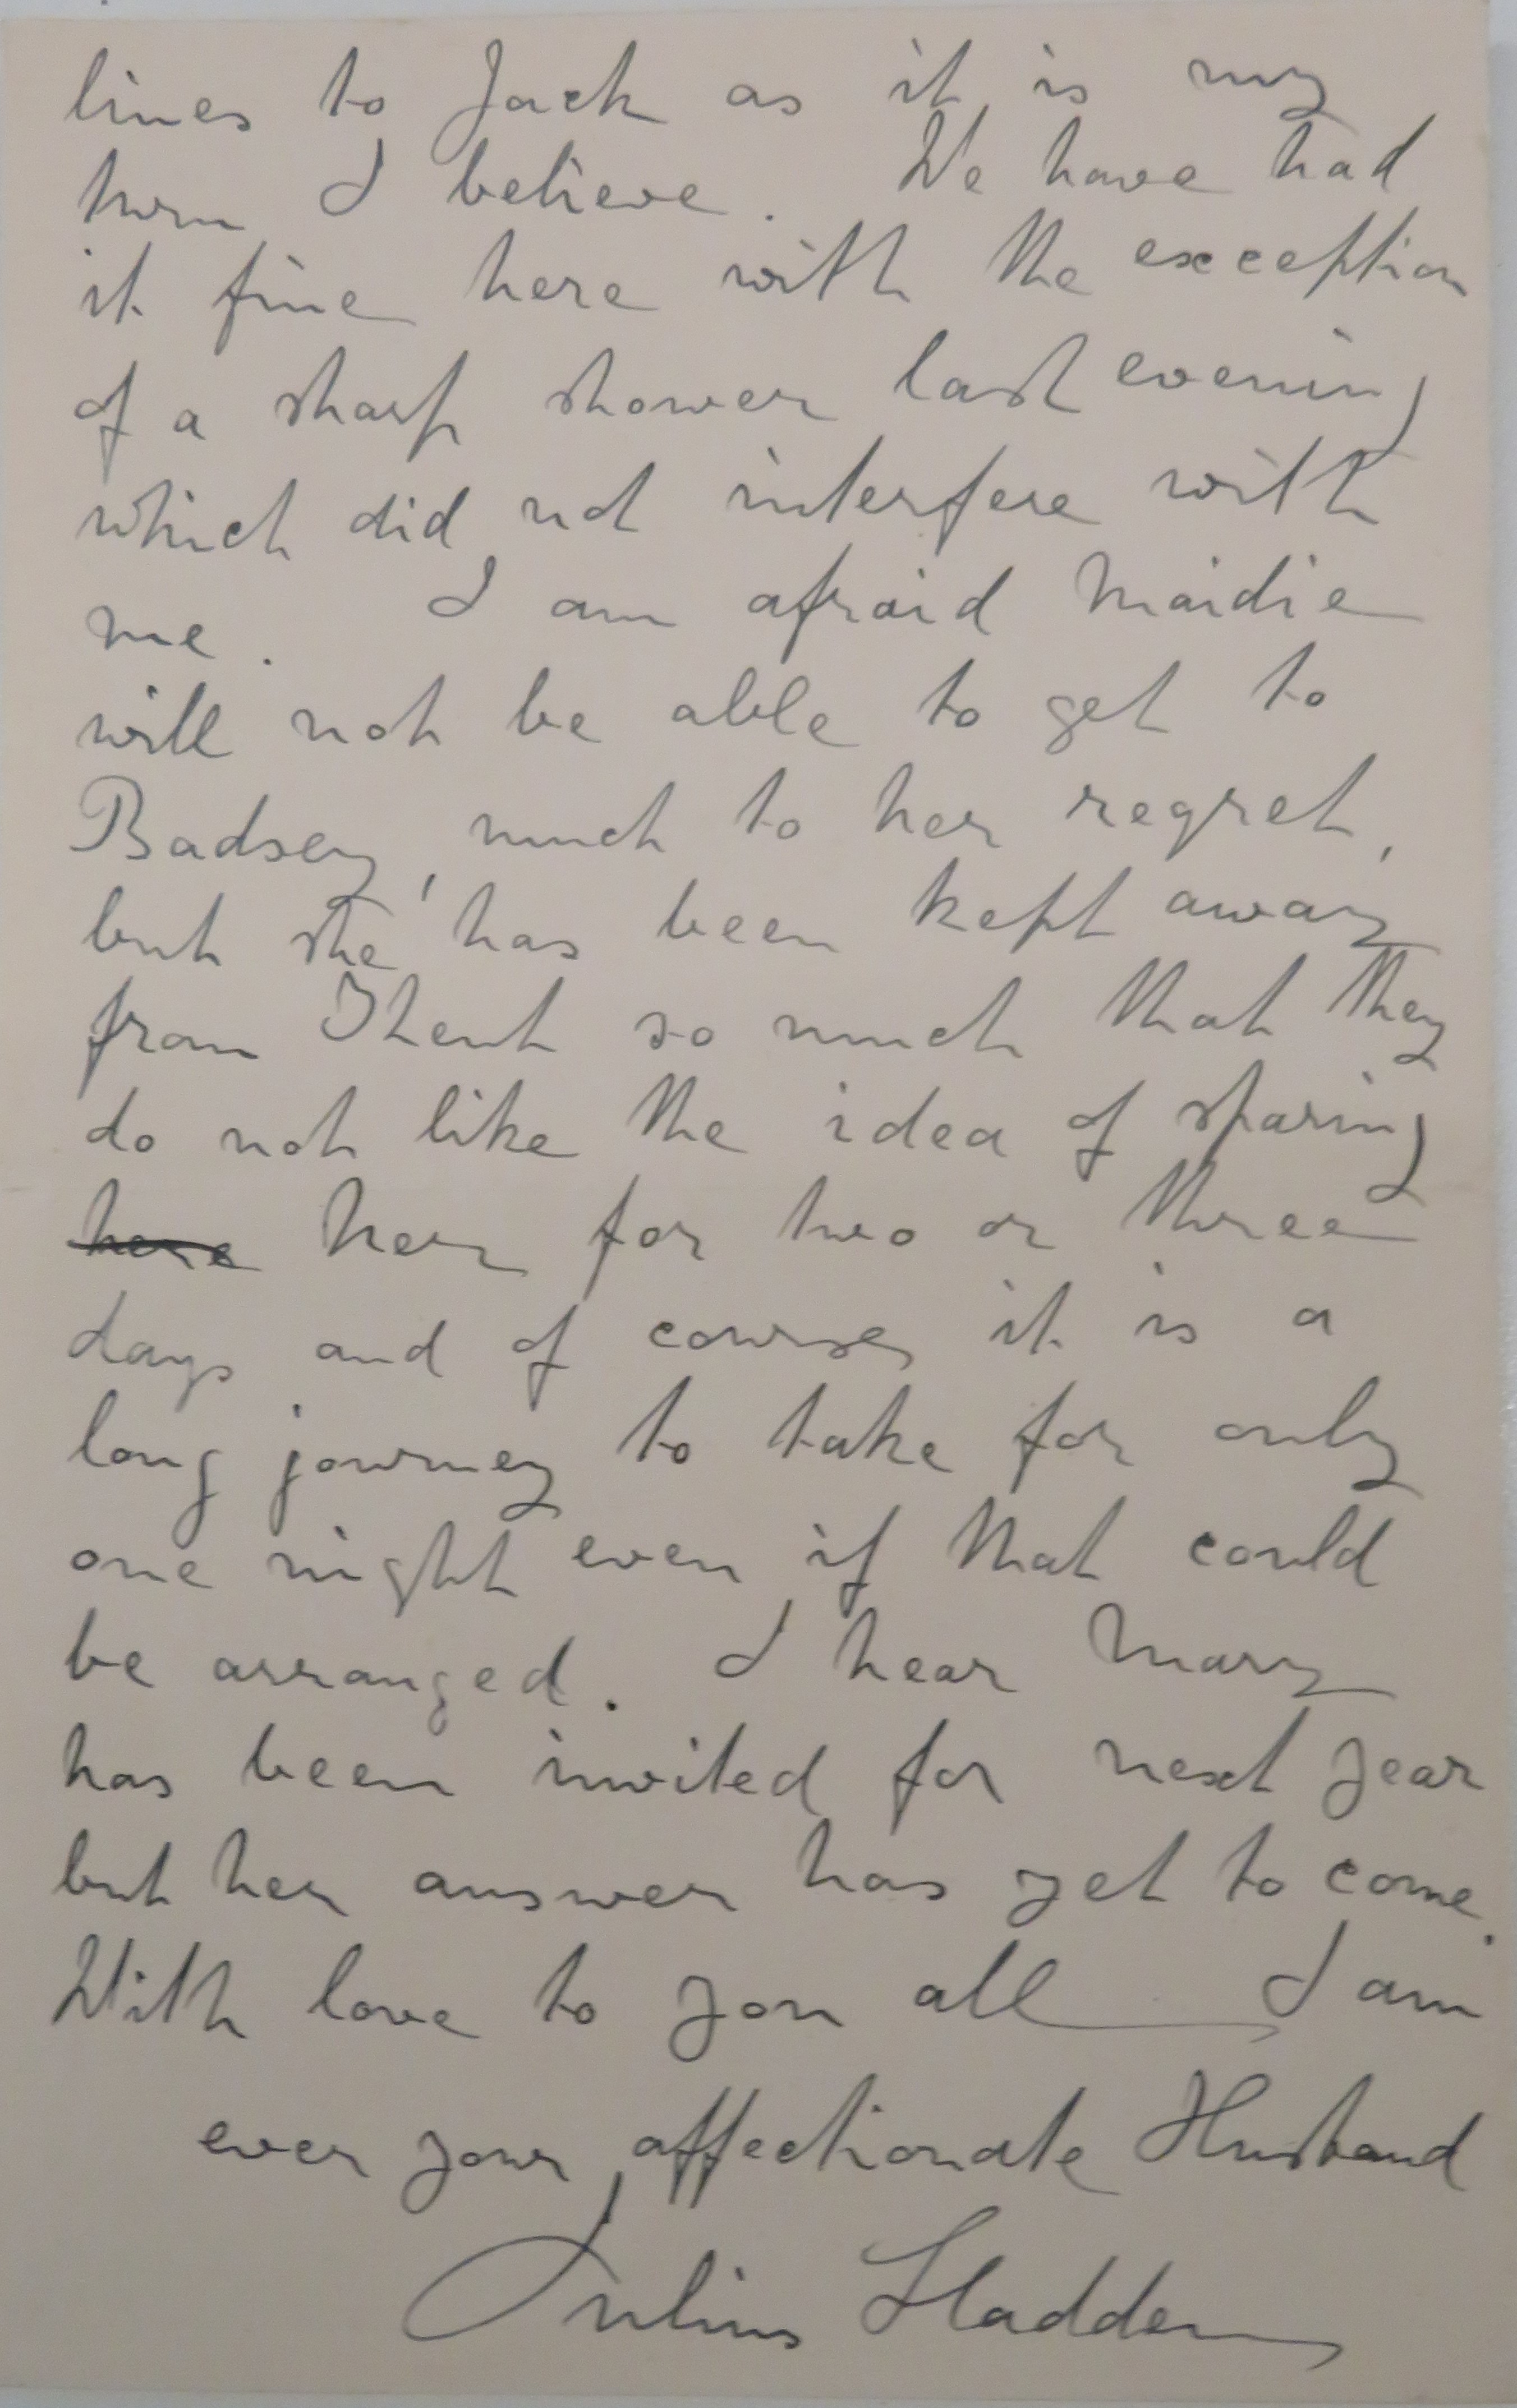 lines to Jack as it is my
turn I believe. We have had
it fine here with the exception
of a sharp shower last evening
which did not interfere with
me. I am afraid Maidie
will not be able to get to
Badsey, much to her regret,
but she has been kept away
from Trent so much that they
do not like the idea of sparing
here her for two or three
days and of course it is a
long journey to take for only
one night even if that could
be arranged. I hear Mary
has been invited for next year
but her answer has yet to come.
With love to you all I am
ever your affectionate Husband
Julius Sladden